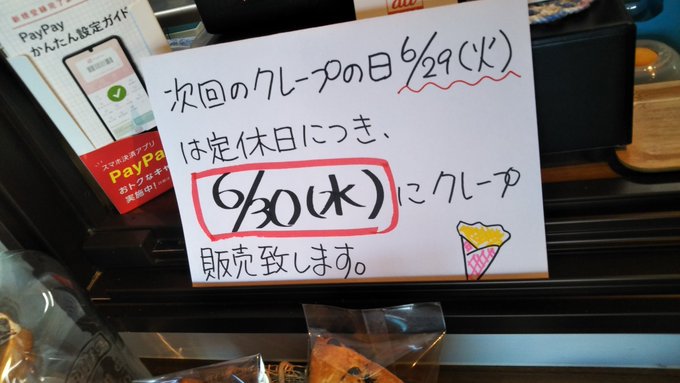 新規登録完了ま
PayPay
かんたん設定ガイド
スマホ決済アプリ
PayPa
おトクなキャ
実施中!
au
次回のクレープの日6/29(火)
は定休日につき、
6/30(水)にクレープ
販売致します。